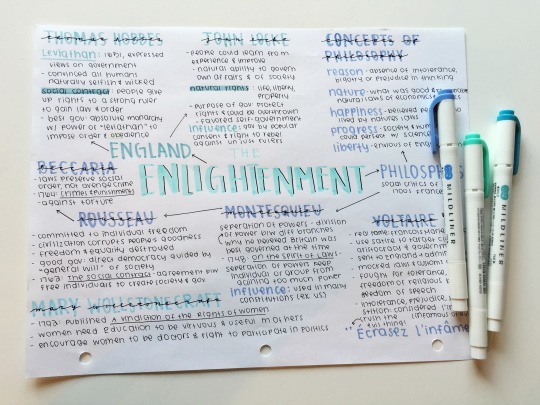 THOMAS HOBBES
Leviathan: 1651, expressed
views on government
- convinced all humans
naturally selfish & wicked
social contract: people give
up rights to a strong ruler
to gain law & order
- best gov: absolute monarchy
w/ power of "leviathan" to
impose order & obedience
JOHN LOCKE
- people could learn from
experience & improve
- natural ability to govern
own affairs & of society
natural rights: life, liberty,
property
- purpose of gov: protect
rights & could be overthrown
- favored self-government
influence: gov by popular
consent & right to rebel
against unjust rulers
CONCEPTS OF
PHILOSOPHY
reason - absence of intolerance,
bigotry or prejudice in thinking
nature - what was good &
natural laws of economics
happiness - believed
lived by natures laws
progress - society & human
could perfect w/ science
liberty - envious of
ENGLAND
THE
ENLIGHTENMENT
PHILOSOPH
social critics of
BECCARIA
- laws preserve social
order, not avenge crime
- 1764: crimes & punishments
- against torture
ROUSSEAU
- committed to individual freedom
- civilization corrupts peoples goodness
- freedom & equality destroyed
- good gov: direct democracy guided by
"general will" of society
- 1762: the social contract - agreement btw
free individuals to create society & gov
MONTESQUIEU
separation of powers - division
of power btw diff branches
why he believed Britain was
best governed at the time
- 1748: on the spirit of laws
separation of powers keep
individual or group from
gaining too much power
influence: used in many
constitutions (ex: US)
VOLTAIRE
- use satire to target cl
aristocracy & governm
- sent to England & admi
- mocked laws & customs
- fought for tolerance,
freedom of religious
freedom of speech
- intolerance, prejudice,
"Écrasez l'infâme
MARY WOLLSTONECRAFT
- 1792: published A vindication of the Rights of women
- women need education to be virtuous & useful mothers
- encourage women to be doctors & right to participate in politics
MILDLINER
MILDLINER